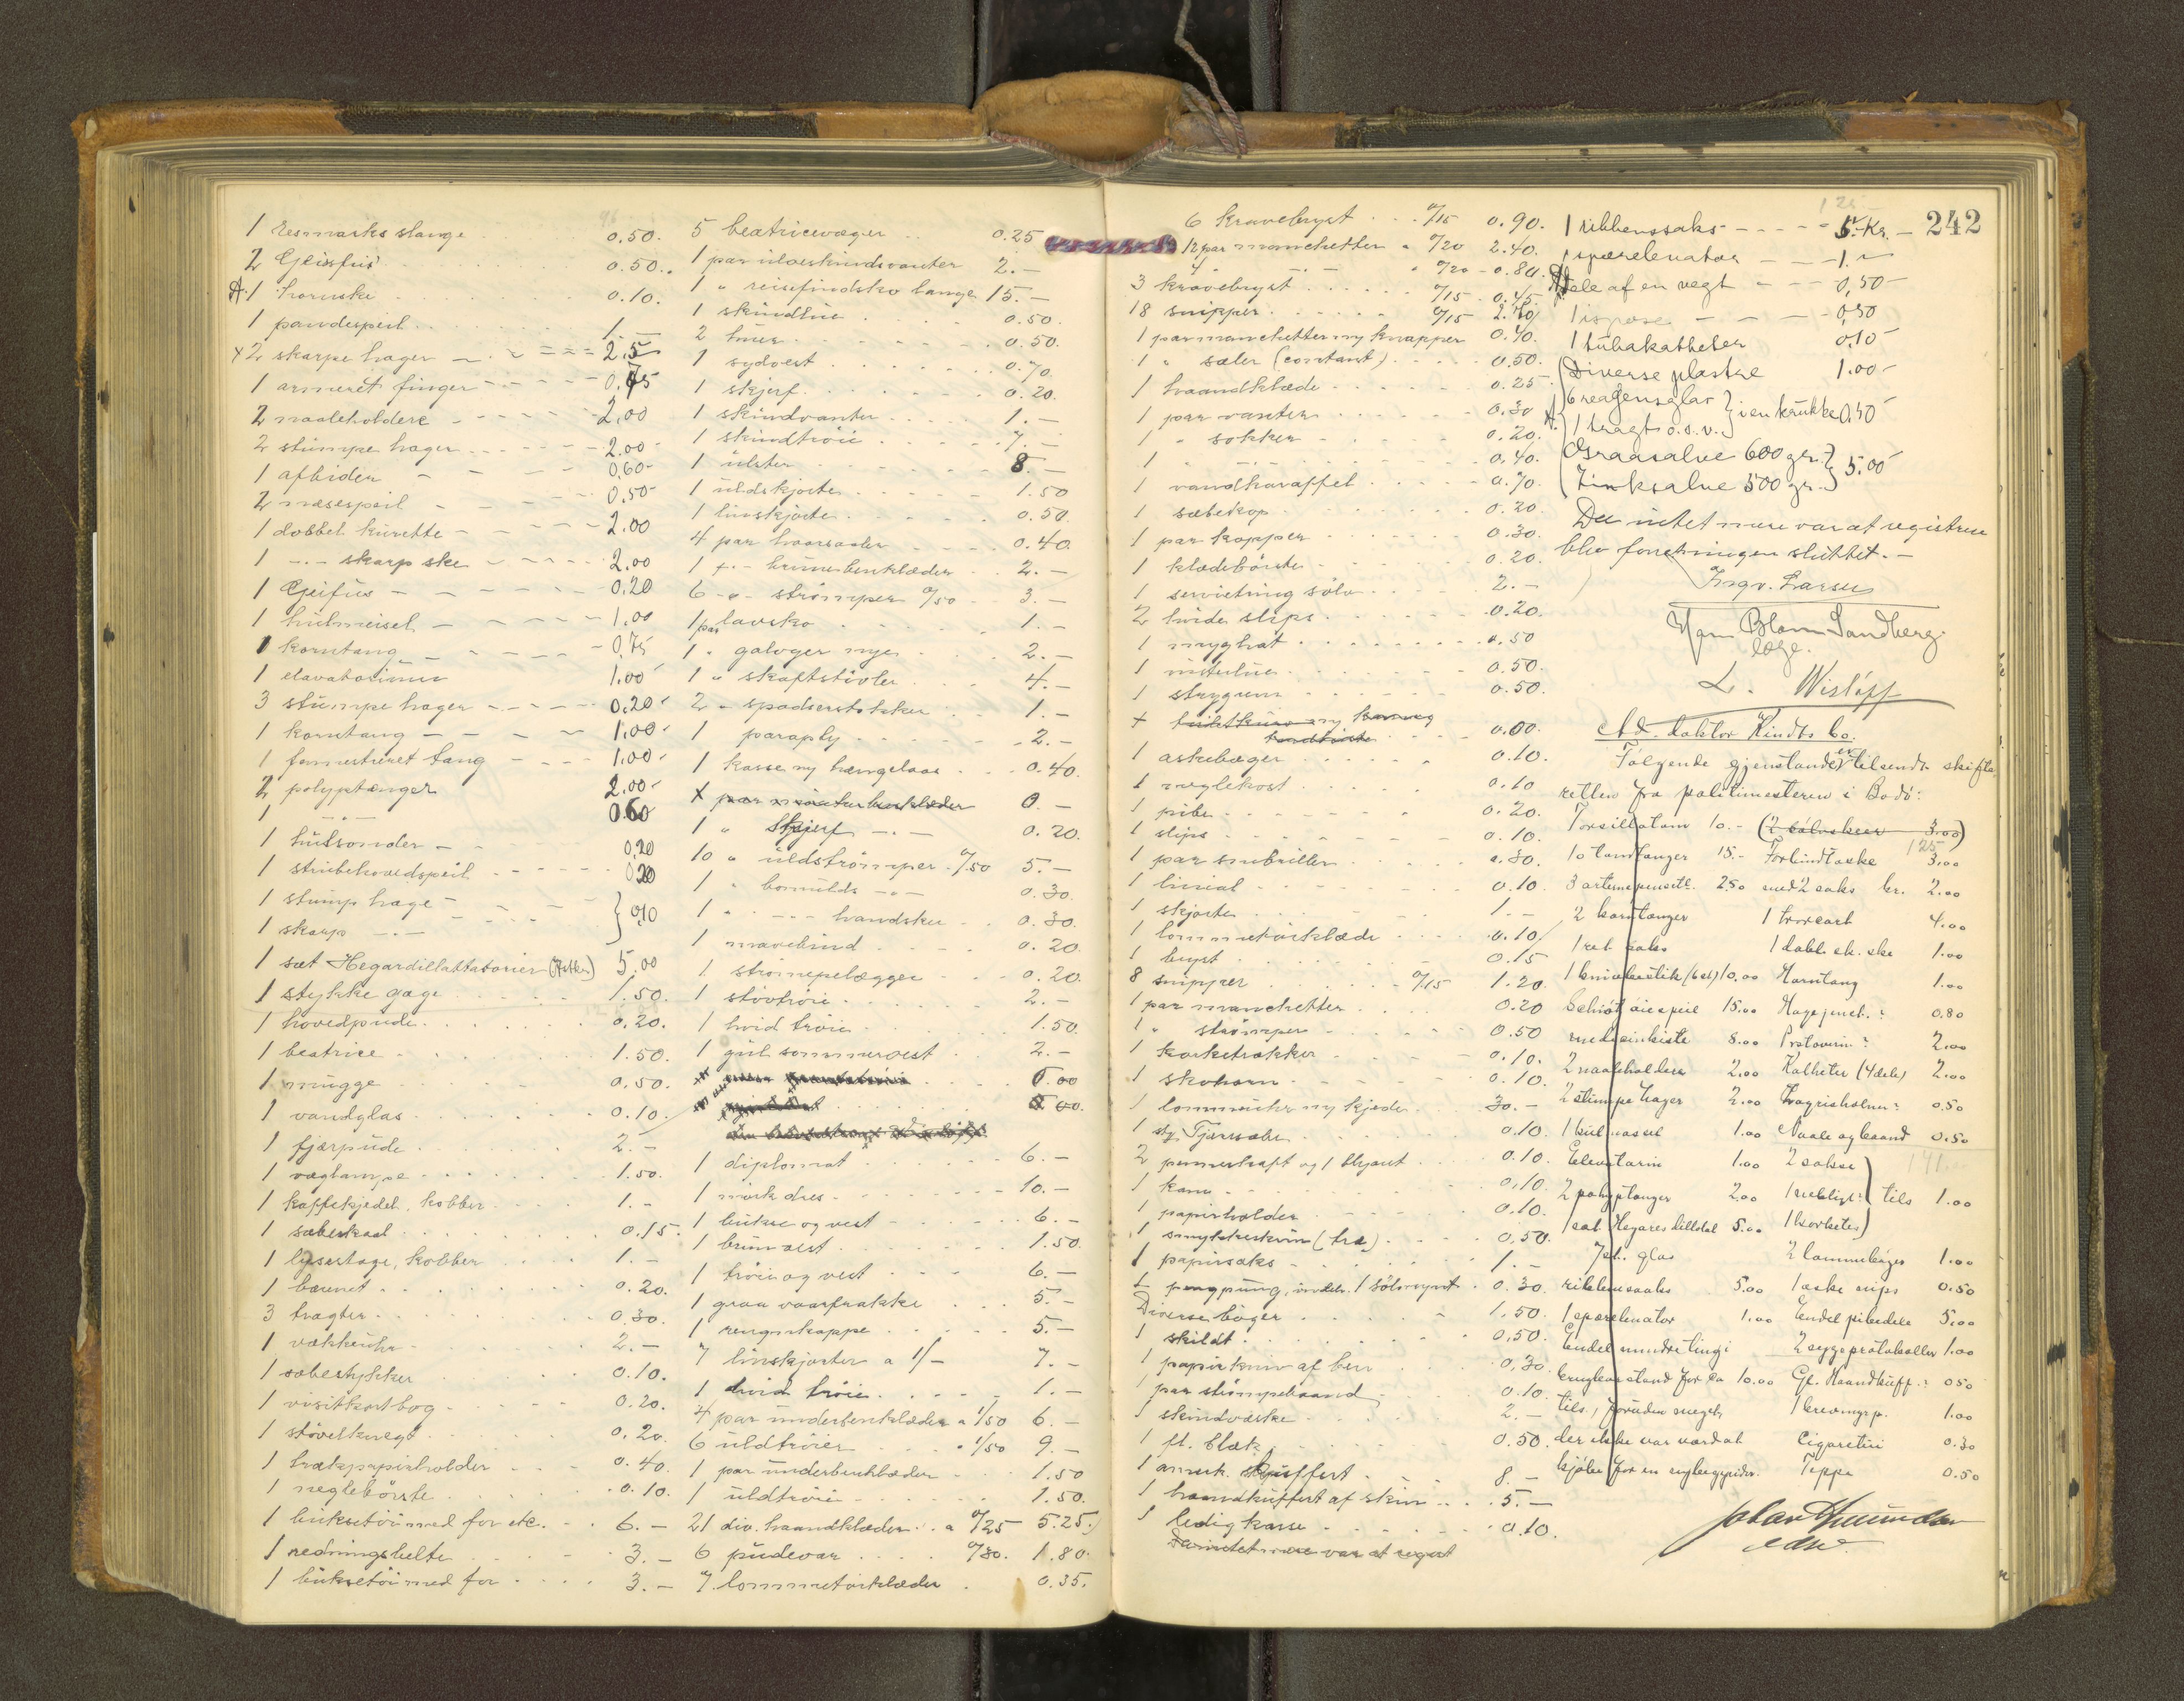 1 Esmarks slange 0.50.
2 Geisfus 0.50.
1 hornske 0.10.
1 pandespeil 1.–
2 skarpe hager 2.5
1 armeret finger 0.75
2 naaleholdere 2.00
2 stumpe hager 2.00
1 afbider 0,60
2 næsespeil 0.50
1 dobbel kurette 2.00
1 -„- skarp ske 2.00
1 Geifus 0.20
1 hulmeisel 1.00
1 korntang 0,75
1 elavatorium 1.00
3 stumpe hager 0.20
1 korntang 1.00
1 fennestreret tang 1.00
2 polyptænger 2.00
1 -„- 0.60
1 hulsonder 0,20
1 strubehovedspeil 0.20
1 stump hage
1 skarp -„- } 0,10
1 sæt Hegardillattatorier (7 stkr) 5.00
1 stykke gage 1.50.
1 hovedpude 0.20.
1 beatrice 1.50.
1 mugge 0.50.
1 vandglas 0.10.
1 fjærpude 2.–
1 væglampe 1.50.
1 kaffekjedel, kobber 1.–
1 sæbeskaal 0.15.
1 lysestage, kobber 1.–
1 bænet 0.20.
3 tragter 0.30.
1 vækkeuhr 2.–
1 sæbestykker 0.10.
1 visitkortbog 0.20.
1 støvelknegt 0.20.
1 trækpapirholder 0.40.
1 neglebørste 0.10.
1 buksetøi med for etc. 6.–
1 redningsbelte 3.–
1 buksetøi med for 3.–
5 beatricevæger 0.25
1 par ulveskindsvanter 2.–
1 „ reisefindsko lange 15.–
1 skindlue 0.50.
2 huer 0.50.
1 sydvest 0.70.
1 skjerf 0.20.
1 skindvanter 1.–
1 skindtrøie 7.–
1 ulster 8.–
1 uldskjorte 1.50
1 linskjorte 0.50
4 par haarsaaler 0.40.
1 -„- brune benklæder 2.–
6 -„- strømper 0/50 3.–
1 par lavsko 1.–
1 „ galoger nye 2.–
1 „ skaftstøvler 4.–
2 „ spadserstokker 1.–
1 paraply 2.–
1 kasse m/ hængelaas 0.40.
x par vinterbenklæder 0.–
1 „ Skjerf -„- 0.20.
10 „ uldstrømper 0/50 5.–
1 „ bomulds -„- 0.30
1 „ -„- handsker 0.30.
1 mavebind 0.20
1 strømpelægger 0.20.
1 støvtrøie 2.–
1 hvid trøie 1.50.
1 gul sommervest 2.–
0.00
1 diplomat 6.–
1 mørk dres 10.–
1 bukse og vest 6.–
1 brun vest 1.50.
1 trøie og vest 6.–
1 graa vaarfrakke 5.–
1 regnkappe 5.–
7 linskjorter a 1/– 7.–
1 hvid trøie 1.–
4 par underbenklæder a 1/50 6.–
6 uldtrøier „ 1/50 9.–
1 par underbenklæder 1.50
1 uldtrøie 1.50.
21 div. haandklæder a 0/25 5.25.
6 pudevar 0/30. 1.80.
7 lommetørklæder 0.35.
6 kravebryst 0/15 0.90.
12 par manchetter a 0/20 2.40.
4 „ – „ 0/20 – 0.80.
3 kravebryst 0/15 0.45.
18 snipper 0/15 2.70
1 par manchetter m/ knapper 0.40.
1 „ sæler (contant) 0.50.
1 haandklæde 0.25
1 par vanter 0.30
1 „ sokker 0.20.
1 „ 0.40.
1 vandkaraffel 0.70.
1 sæbekop 0.20
1 par kopper 0.30
1 klædebørste 0.20.
1 serviettring sølv 2.–
2 hvide slips 0.20.
1 myghat 0.50
1 vinterlue 0.50.
1 strygrem 0.50.
x 0.00
1 askebæger 0.10.
1 neglekost 0.10
1 pibe 0.20.
1 slips 0.10.
1 par snebriller 0.30.
1 linial 0.10
1 skjorte 1.–
1 lommetørklæde 0.10
1 bryst 0.15
8 snipper 0/15 1.20
1 par manchetter 0.20
1 „ strømper 0.50
1 korketrækker 0.10.
1 skohorn 0.10.
1 lommeuhr m/ kjede 30.–
1 st. Tjæresæbe 0.10.
2 penneskaft og 1 blyant 0.10.
1 kam 0,10.
1 papirholder 0.10.
1 smykkeskrin (træ) 0,50.
1 papirsaks 1.–
1 pengpung, inneh. 1 sølvmynt 0.30.
Diverse bøger 1.50.
1 skildt 0,50.
1 papirkniv af ben 0,30.
1 par strømpebaand 0.10.
1 skindvæske 2.–
1 fl. blæk 0.50.
1 amerk. kuffert 8.–
1 haandkuffert af skin 5.–
1 ledig kasse 0.10.
Da intet mere var at regist
242
1 ribbenssaks 5 Kr. –
1 spærelevator 1.–
Dele af en vegt 0,50
1 ispose 0,50
1 tubakatheter 0,10
Diverse plastre 1.00
6 reagensglas } i en krukke 0,40
1 tragt o.s.v.
Graasalve 600 gr. } 5.00
Zinksalve 500 gr.
Da intet mere var at registrere
blev forretningen sluttet. –
Ingv. Larsen
Blom Sandberg
læge.
L. Wisløff
Ad. doktor Kindts bo.
Følgende gjenstande er tilsendt skifte
retten fra politimesteren i Bodø:
10.– (2 sølvskeer 3.00)
10 tandtanger 15.– Forbindtaske 3.00
2.50 med 2 saks kr. 2.00
2 korntanger 1 trocart 4.00
1 ret saks 1 dobb. sk. ske 1.00
10.00 Korntang 1.00
15.00 0.80
medicinkiste 8.00 2.00
2 naaleholdere 2.00 Katheter (4 dele) 2.00
2 stumpe hager 2.00 0.50
1 hulmeisel 1.00 Naale og baand 0.50
Elevatorie 1.00 2 sakse
2 polyptanger 2.00 tils 1.00
1 sæt Hegares dilltat 5.00
7 st. glas 2 lommebøger 1.00
ribbensaks 5.00 1 æske snips 0.50
1 spærelevator 1.00 Endel pibedele 5.00
Endel mindre ting i 2 sygeprotokoller 1.00
brugbar stand for ca 10.00 Gl. Haandkuff. 0.50
tils, foruden meget, 1.00
der ikke var værd at Cigaretui 0.30
kjøbe for en nybegynder. Teppe 0.50